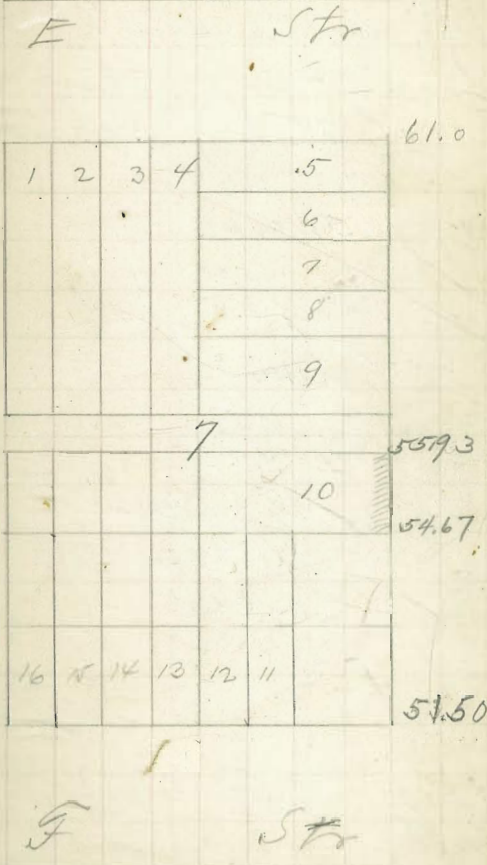 E Str
61.0
1 2 3 4 5
6
7
8
9
7
55.93
10
54.67
16 15 14 13 12 11
51.50
F Str